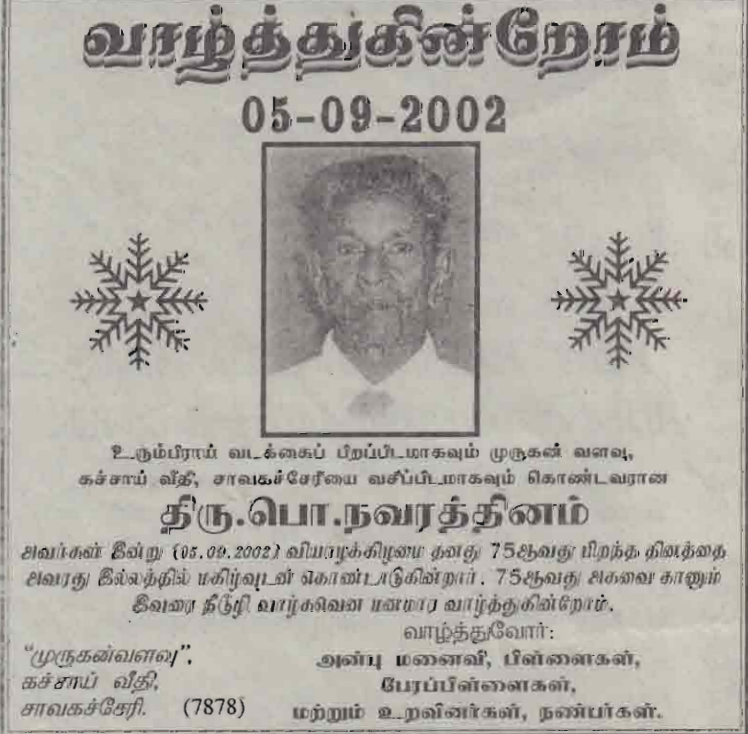 வாழ்த்துகின்றோம்
05-09-2002
உரும்பிராய் வடக்கைப் பிறப்பிடமாகவும் முருகன் வளவு,
கச்சாய் வீதி, சாவகச்சேரியை வசிப்பிடமாகவும் கொண்டவரான
திரு.பொ.நவரத்தினம்
அவர்கள் இன்று (05.09.2002) வியாழக்கிழமை தனது 75ஆவது பிறந்த தினத்தை
அவரது இல்லத்தில் மகிழ்வுடன் கொண்டாடுகின்றார். 75ஆவது அகவை காணும்
இவரை நீடூழி வாழ்கவென மனமார வாழ்த்துகின்றோம்.
வாழ்த்துவோர்:
அன்பு மனைவி, பிள்ளைகள்,
பேரப்பிள்ளைகள்,
மற்றும் உறவினர்கள், நண்பர்கள்.
"முருகன்வளவு",
கச்சாய் வீதி,
சாவகச்சேரி. (7878)